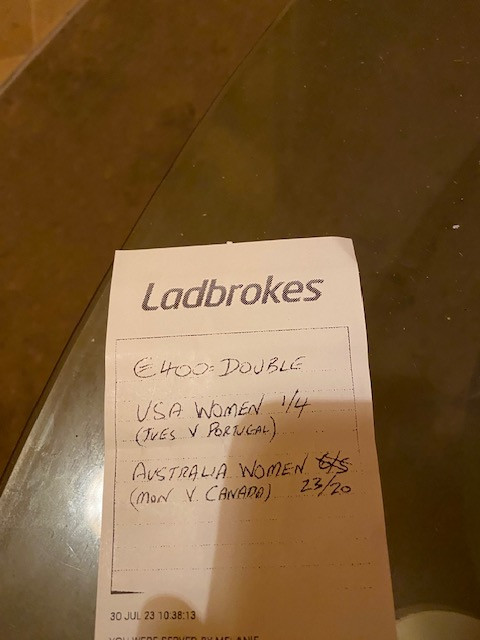 Ladbrokes
€400= DOUBLE
USA WOMEN 1/4
(TUES V PORTUGAL)
AUSTRALIA WOMEN 6/5
(MON V CANADA) 23/20
30 JUL 23 10:38:13
YOU WERE SERVED BY MELANIE